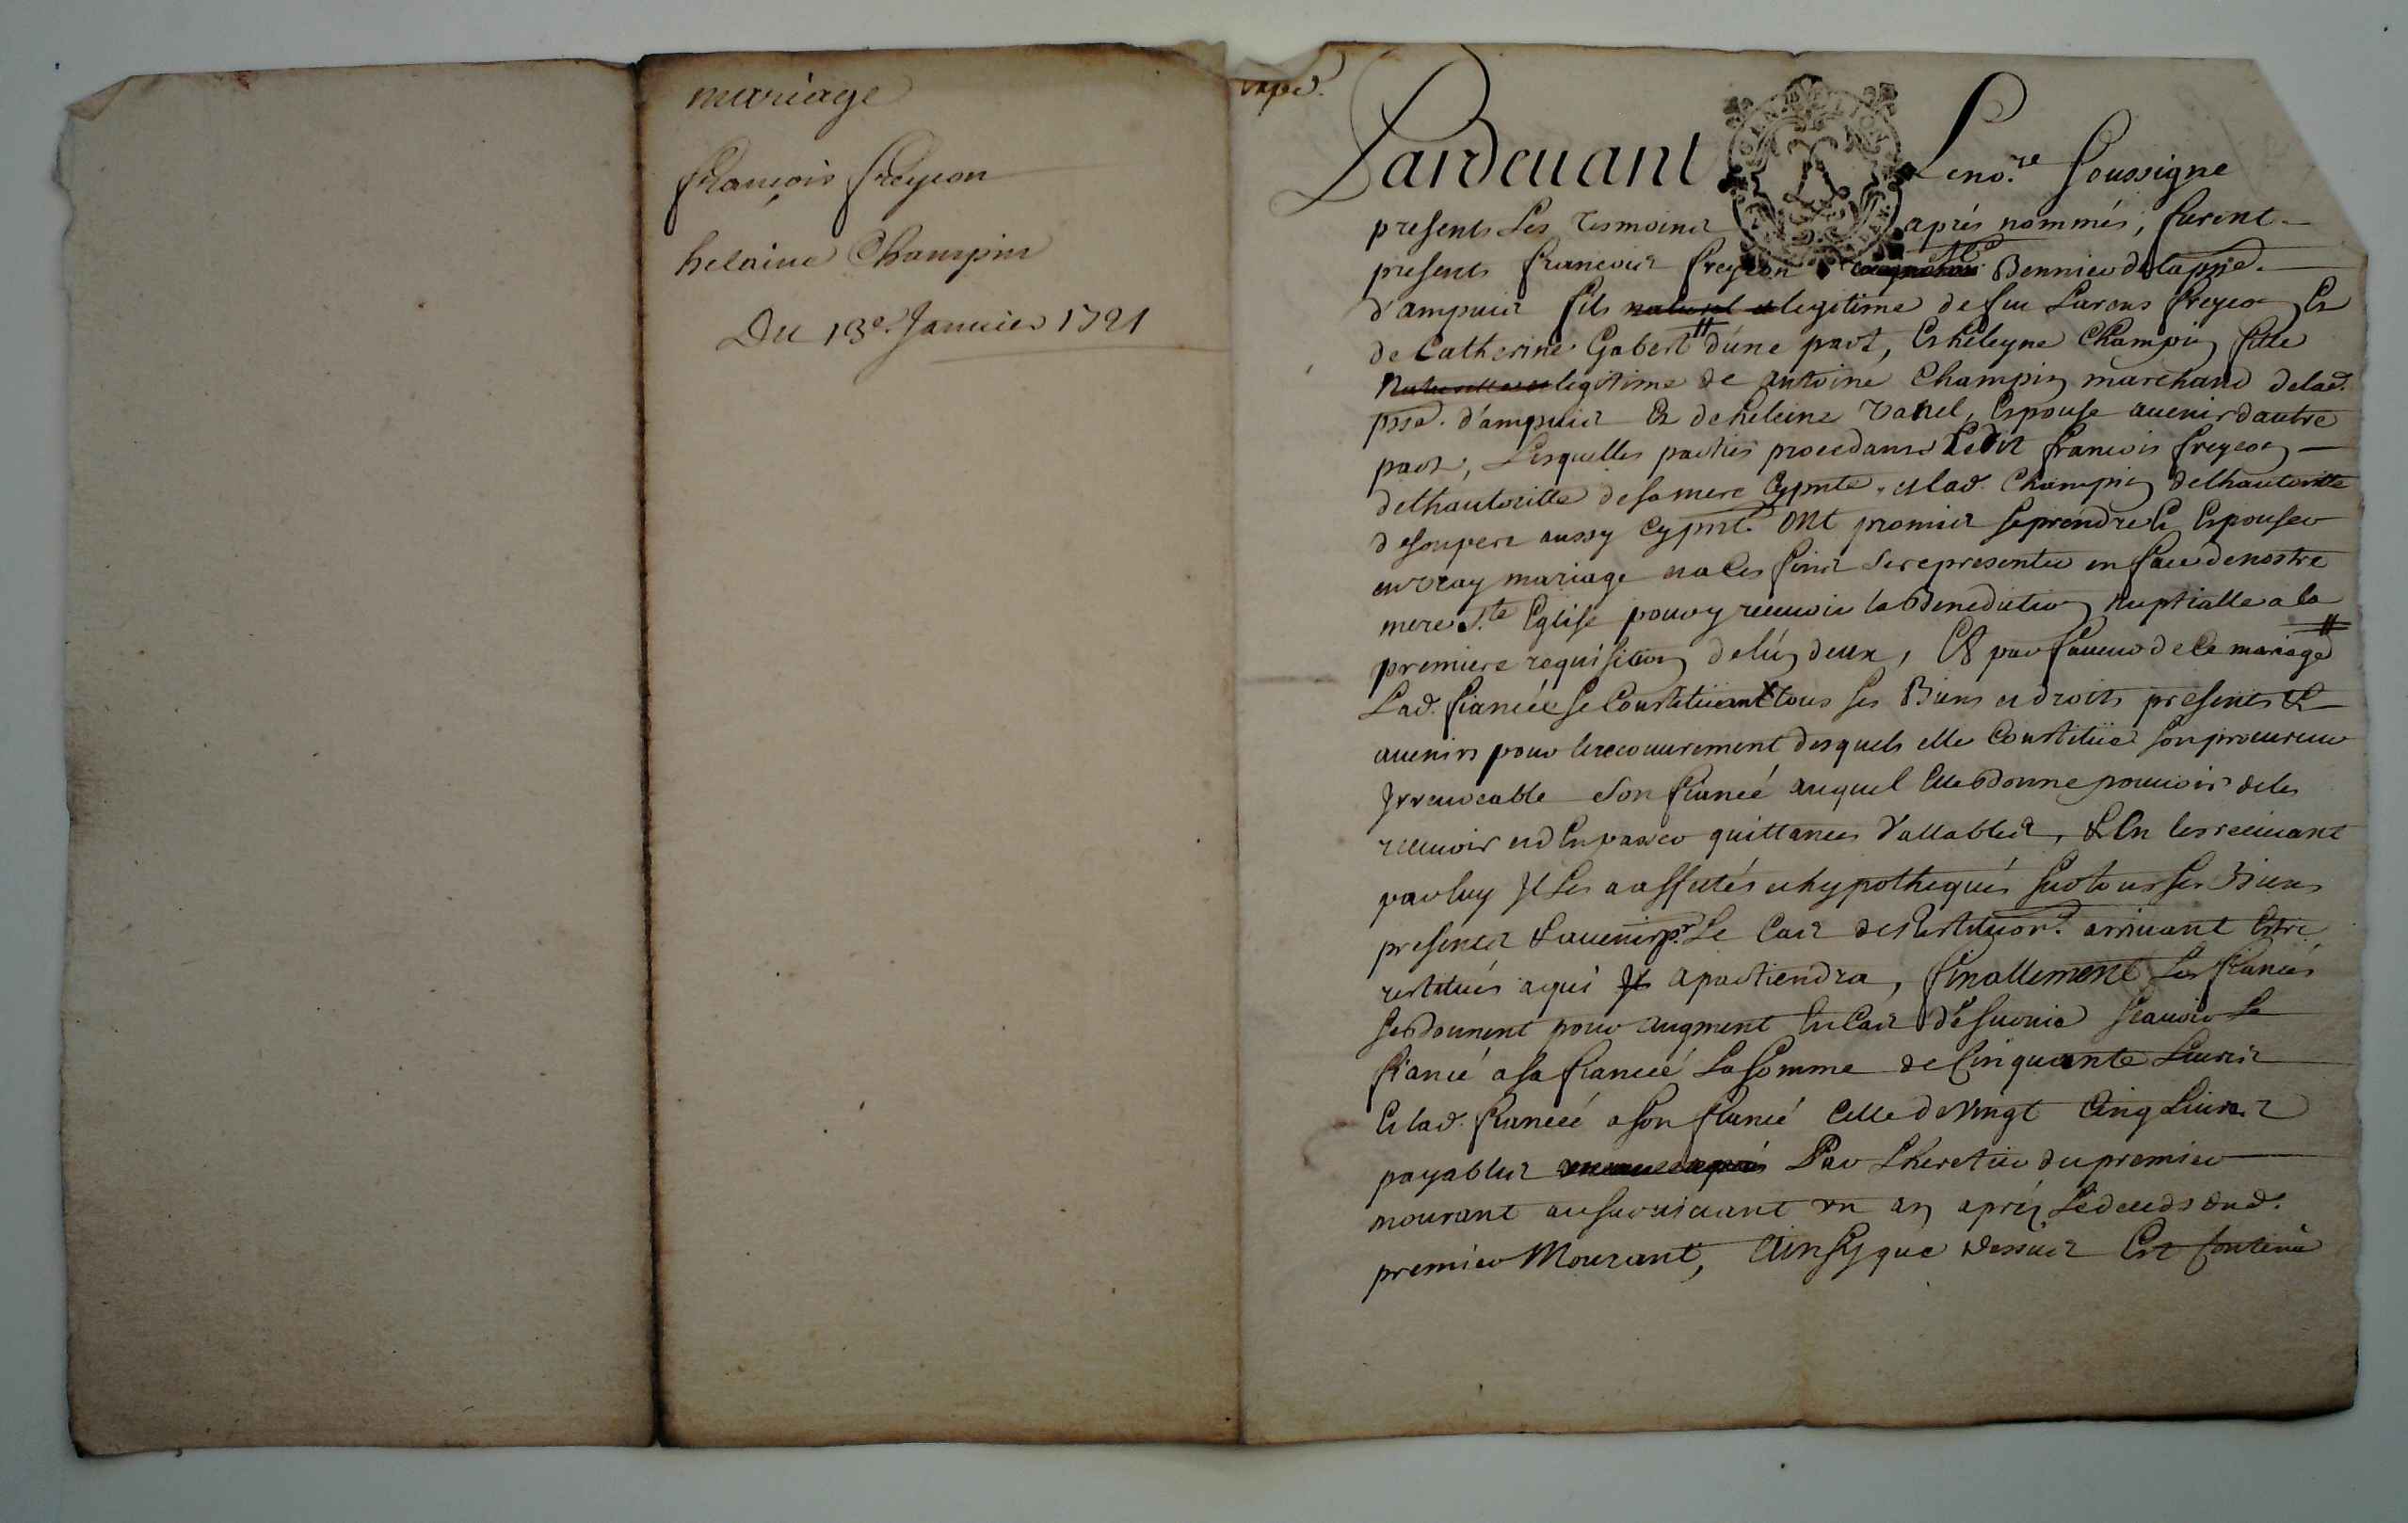 mariage
françois freycon
helaine Champin
Du 13e. Januier 1721
exped.
Pardeuant Le no.re soussigne
presents Les tesmoins après nommés, furent
presents francois freycon Me Bennier de la psse.
d'ampuis fils natural et legitime de feu Laurens freycon Et
de Catherine Gabert d'une part, Et heleyne Champin fille
Naturelle et legitime de Antoine Champin marchand de lad.
psse. d'ampuis Et de heleine Vanel, Espouse auenir dautre
part, Lesquelles parties procedans Ledit francois freycon
delhautoritte de sa mere Cy pnte. et lad. Champin delhautoritte
de son pere aussy Cy pnt. ont promis se prendre Et Espouser
en vray mariage et a Ces fins se representer en face de nostre
mere S.te Eglise pour y receuoir la Benediction Nuptialle a la
premiere requisition de lun deux, Et par faueur de Ce mariage
Lad. fiancée se Constituant tous ses Biens et droits presents &
auenirs pour le recouurement desquels elle Constitüe son procureur
Irreuocable son fiancé auquel Elle donne pouuoir de les
receuoir et d'En passer quittances Vallables, & En les receuant
par luy Il Les a affectés et hypothequés sur tous ses Biens
presents & auenir pr. Le Cas de Restituon. arriuant Estre
restitués a qui Il apartiendra, finallement Les fiancés
se donnent pour augment En Cas de suruie scauoir Le
fiancé a sa fiancée La somme de Cinquante Liures
Et lad. fiancée a son fiancé Celle de Vingt Cinq Liures
payables Par Lheretier du premier
mourant au suruiuant un an après Le deceds dud.
premier Mourant, Ainsy que dessus Est Contenu